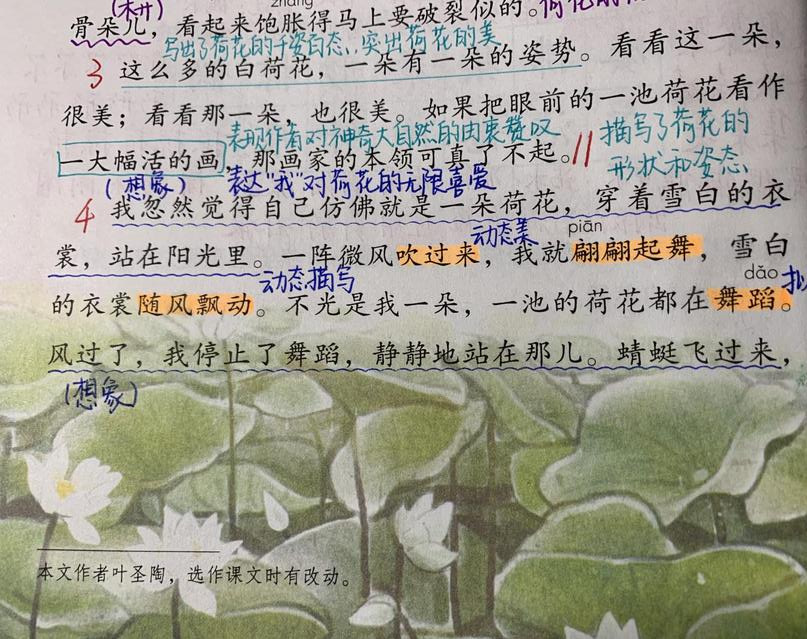 (木耳)
zhāng
骨朵儿，看起来饱胀得马上要破裂似的。荷花的
写出了荷花的千姿百态，突出荷花的美
3 这么多的白荷花，一朵有一朵的姿势。看看这一朵，
很美；看看那一朵，也很美。如果把眼前的一池荷花看作
表现作者对神奇大自然的由衷赞叹 描写了荷花的
一大幅活的画，那画家的本领可真了不起。// 形状和姿态
(想象) 表达"我"对荷花的无限喜爱
4 我忽然觉得自己仿佛就是一朵荷花，穿着雪白的衣
动态美 piān
裳，站在阳光里。一阵微风吹过来，我就翩翩起舞，雪白
动态描写 dǎo 拟
的衣裳随风飘动。不光是我一朵，一池的荷花都在舞蹈。
风过了，我停止了舞蹈，静静地站在那儿。蜻蜓飞过来，
(想象)
本文作者叶圣陶，选作课文时有改动。